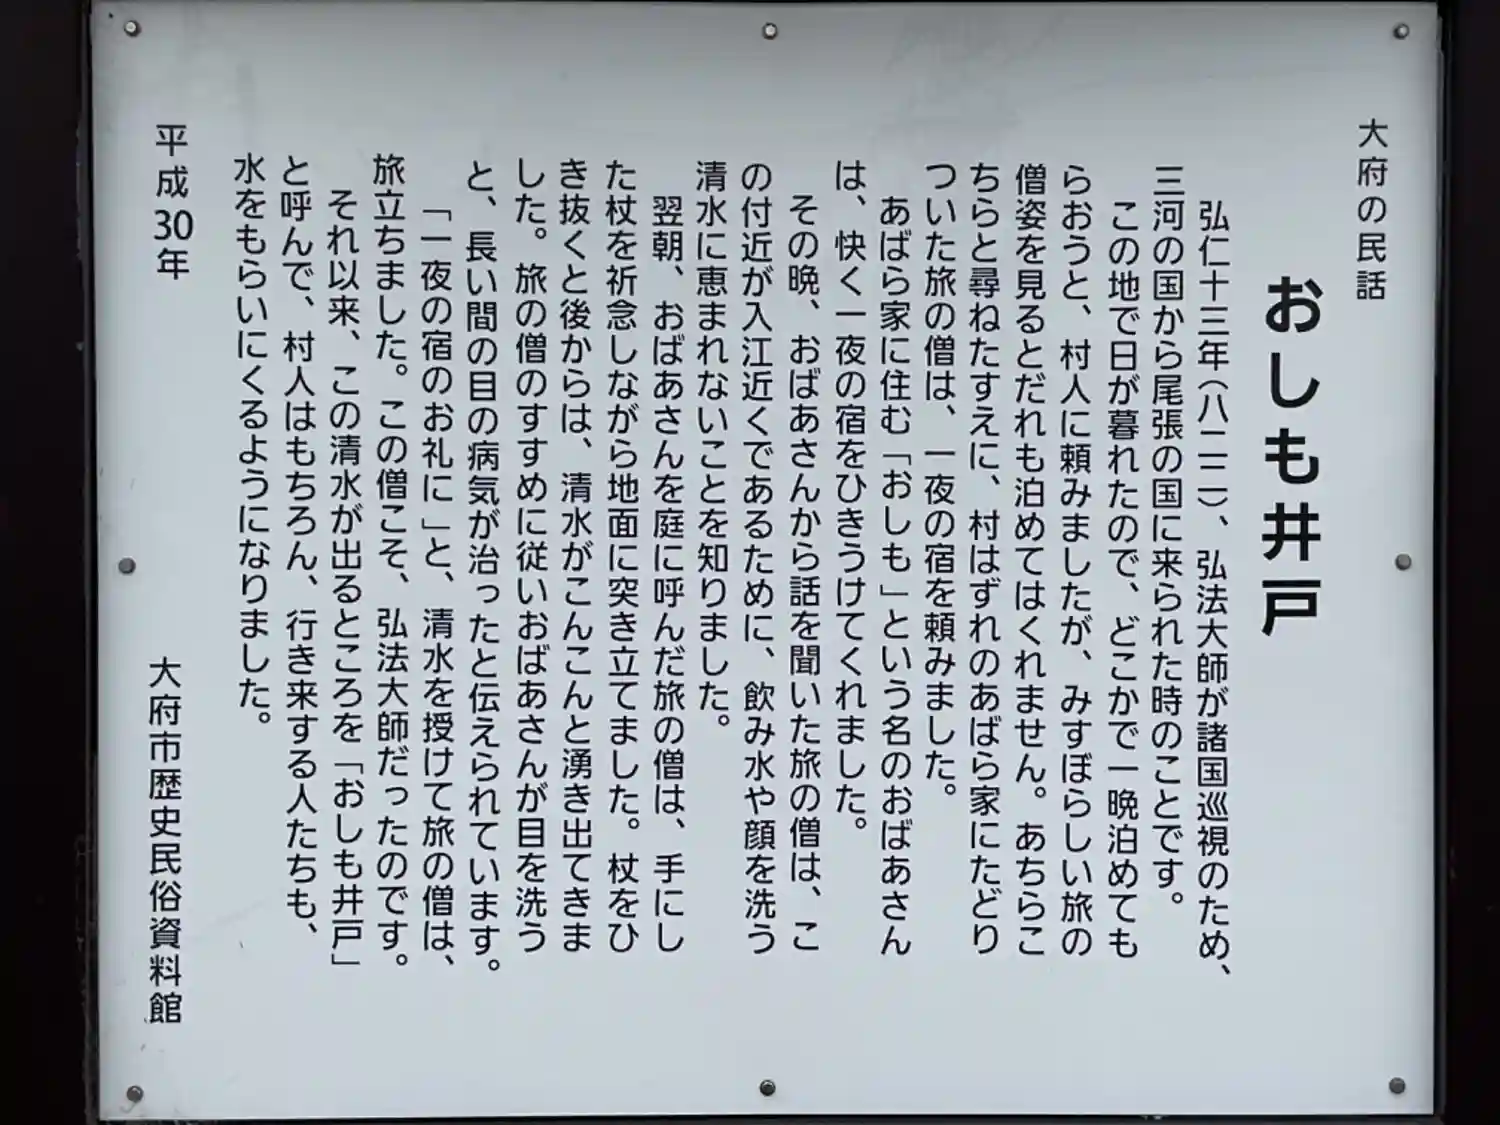 大府の民話
おしも井戸
弘仁十三年（八二二）、弘法大師が諸国巡視のため、
三河の国から尾張の国に来られた時のことです。
この地で日が暮れたので、どこかで一晩泊めても
らおうと、村人に頼みましたが、みすぼらしい旅の
僧姿を見るとだれも泊めてはくれません。あちらこ
ちらと尋ねたすえに、村はずれのあばら家にたどり
ついた旅の僧は、一夜の宿を頼みました。
あばら家に住む「おしも」という名のおばあさん
は、快く一夜の宿をひきうけてくれました。
その晩、おばあさんから話を聞いた旅の僧は、こ
の付近が入江近くであるために、飲み水や顔を洗う
清水に恵まれないことを知りました。
翌朝、おばあさんを庭に呼んだ旅の僧は、手にし
た杖を祈念しながら地面に突き立てました。杖をひ
き抜くと後からは、清水がこんこんと湧き出てきま
した。旅の僧のすすめに従いおばあさんが目を洗う
と、長い間の目の病気が治ったと伝えられています。
「一夜の宿のお礼に」と、清水を授けて旅の僧は、
旅立ちました。この僧こそ、弘法大師だったのです。
それ以来、この清水が出るところを「おしも井戸」
と呼んで、村人はもちろん、行き来する人たちも、
水をもらいにくるようになりました。
平成30年
大府市歴史民俗資料館